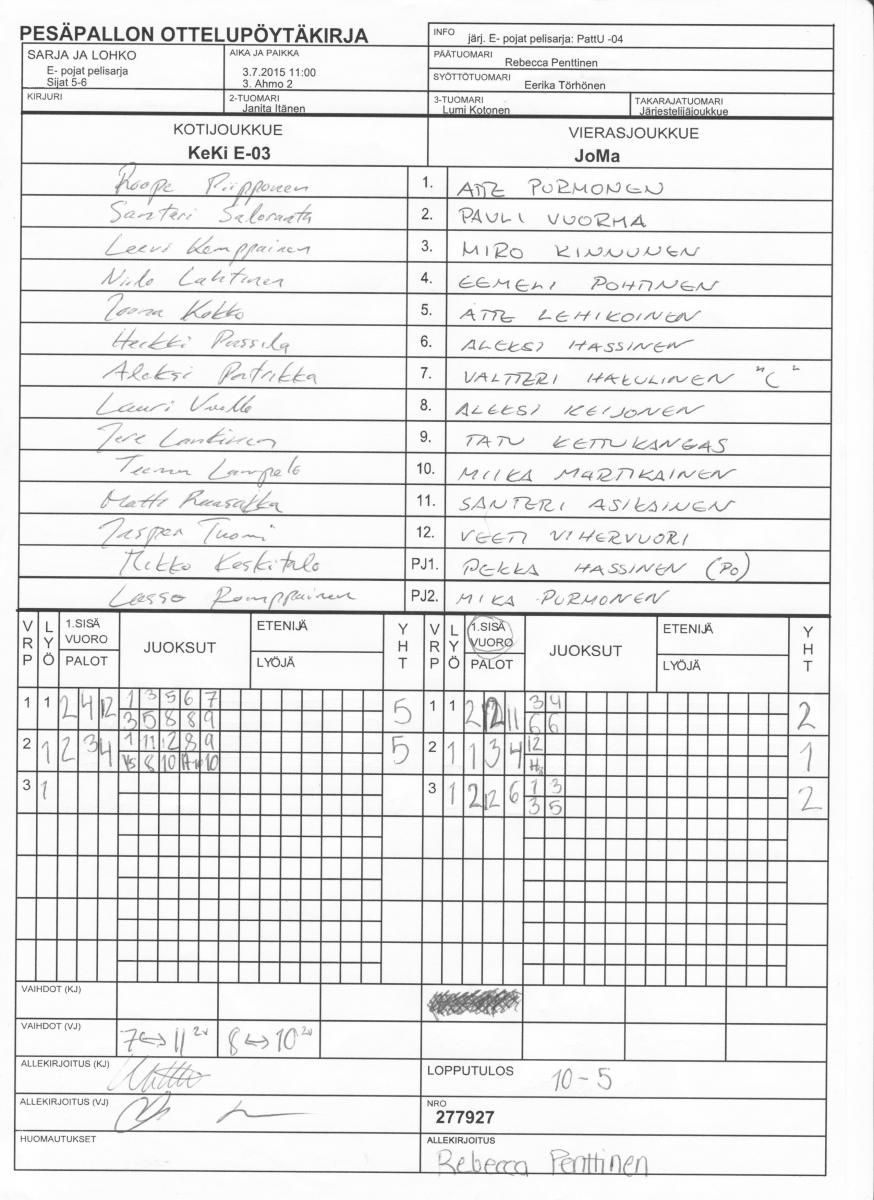 PESÄPALLON OTTELUPÖYTÄKIRJA
INFO järj. E- pojat pelisarja: PattU -04
SARJA JA LOHKO
E- pojat pelisarja
Sijat 5-6
AIKA JA PAIKKA
3.7.2015 11:00
3. Ahmo 2
PÄÄTUOMARI
Rebecca Penttinen
SYÖTTÖTUOMARI
Eerika Törhönen
KIRJURI
2-TUOMARI
Janita Itänen
3-TUOMARI
Lumi Kotonen
TAKARAJATUOMARI
Järjestelijäjoukkue
KOTIJOUKKUE
KeKi E-03
VIERASJOUKKUE
JoMa
Roope Piipponen 1. ATTE PURMONEN
Santeri Saloranta 2. PAULI VUORMA
Leevi Kemppainen 3. MIRO KINNUNEN
Niilo Lahtinen 4. EEMELI POHTINEN
Joona Kokko 5. ATTE LEHIKOINEN
Heikki Passila 6. ALEKSI HASSINEN
Aleksi Patrikka 7. VALTTERI HAKULINEN "C"
Lauri 8. ALEKSI KEIJONEN
Jere Lankinen 9. TATU KETTUKANGAS
Teemu Lampelo 10. MIIKA MARTIKAINEN
Matti Ruuskka 11. SANTERI ASIKAINEN
Jasper Tuomi 12. VEETI VIHERVUORI
Mikko Keskitalo PJ1. PEKKA HASSINEN (PO)
Lasse Romppainen PJ2. MIKA PURMONEN
VRP LYÖ 1.SISÄ VUORO PALOT JUOKSUT ETENIJÄ LYÖJÄ YHT VRP LYÖ 1.SISÄ VUORO PALOT JUOKSUT ETENIJÄ LYÖJÄ YHT
1 1 2 4 12 1 3 5 6 7 5 1 1 2 12 11 3 4 2
3 5 8 8 9 6 6
2 1 2 3 4 1 11 12 8 9 5 2 1 1 3 4 12 1
VS 8 10 10
3 1 3 1 2 12 6 1 3 2
3 5
VAIHDOT (KJ)
VAIHDOT (VJ) 7↔11 2v 8↔10 2v
ALLEKIRJOITUS (KJ)
LOPPUTULOS 10-5
ALLEKIRJOITUS (VJ)
NRO
277927
HUOMAUTUKSET
ALLEKIRJOITUS
Rebecca Penttinen